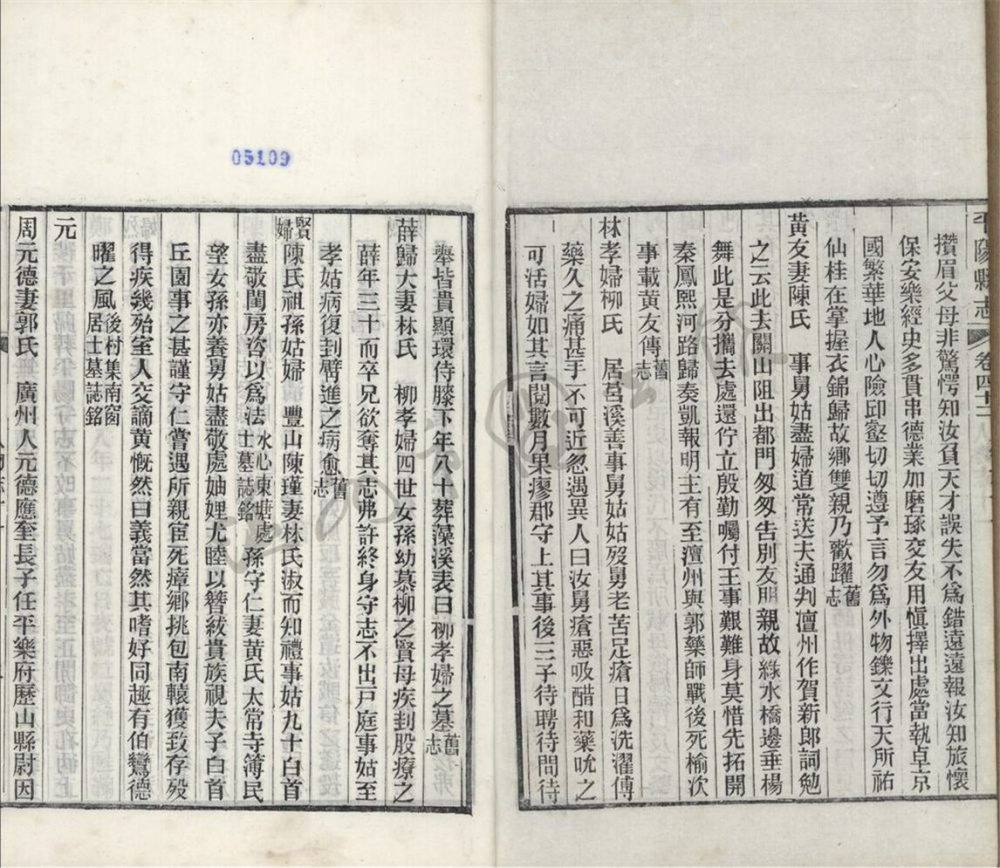 平陽縣志 卷四十二
攢眉父母非驚愕知汝負天才誤失不爲錯遠遠報汝知旅懷
保安樂經史多貫串德業加磨琢交友用愼擇出處當執卓京
國繁華地人心險卬壑切切遵予言勿爲外物鑠文行天所祐
仙桂在掌握衣錦歸故鄉雙親乃歡躍舊志
黃友妻陳氏 事舅姑盡婦道常送夫通判澶州作賀新郎詞勉
之云此去關山阻出都門匆匆告別友朋親故綠水橋邊垂楊
舞此是分攜去處還佇立殷勤囑付王事艱難身莫惜先拓開
秦鳳熙河路歸奏凱報明主有至澶州與郭藥師戰後死榆次
事載黃友傳舊志
林孝婦柳氏 居莒溪善事舅姑姑歿舅老苦足瘡日爲洗濯傅
藥久之痛甚手不可近忽遇異人曰汝舅瘡惡吸醋和藥吮之
可活婦如其言閱數月果瘳郡守上其事後三子待聘待問待
舉皆貴顯環侍膝下年八十葬藻溪表曰柳孝婦之墓舊志
薛歸大妻林氏 柳孝婦四世女孫幼慕柳之賢母疾刲股療之
薛年三十而卒兄欲奪其志弗許終身守志不出戸庭事姑至
孝姑病復刲臂進之病愈舊志
賢婦陳氏祖孫姑婦 豐山陳瑾妻林氏淑而知禮事姑九十白首
盡敬閨房咨以爲法水心東塘處士墓誌銘孫守仁妻黃氏太常寺簿民
望女孫亦養舅姑盡敬處妯娌尤睦以簪紱貴族視夫子白首
丘園事之甚謹守仁嘗遇所親宦死瘴鄉挑包南轅獲致存歿
得疾幾殆室人交謫黃慨然曰義當然其嗜好同趣有伯鸞德
曜之風後村集南窗居士墓誌銘
元
周元德妻郭氏 廣州人元德應奎長子任平樂府歷山縣尉因
05109